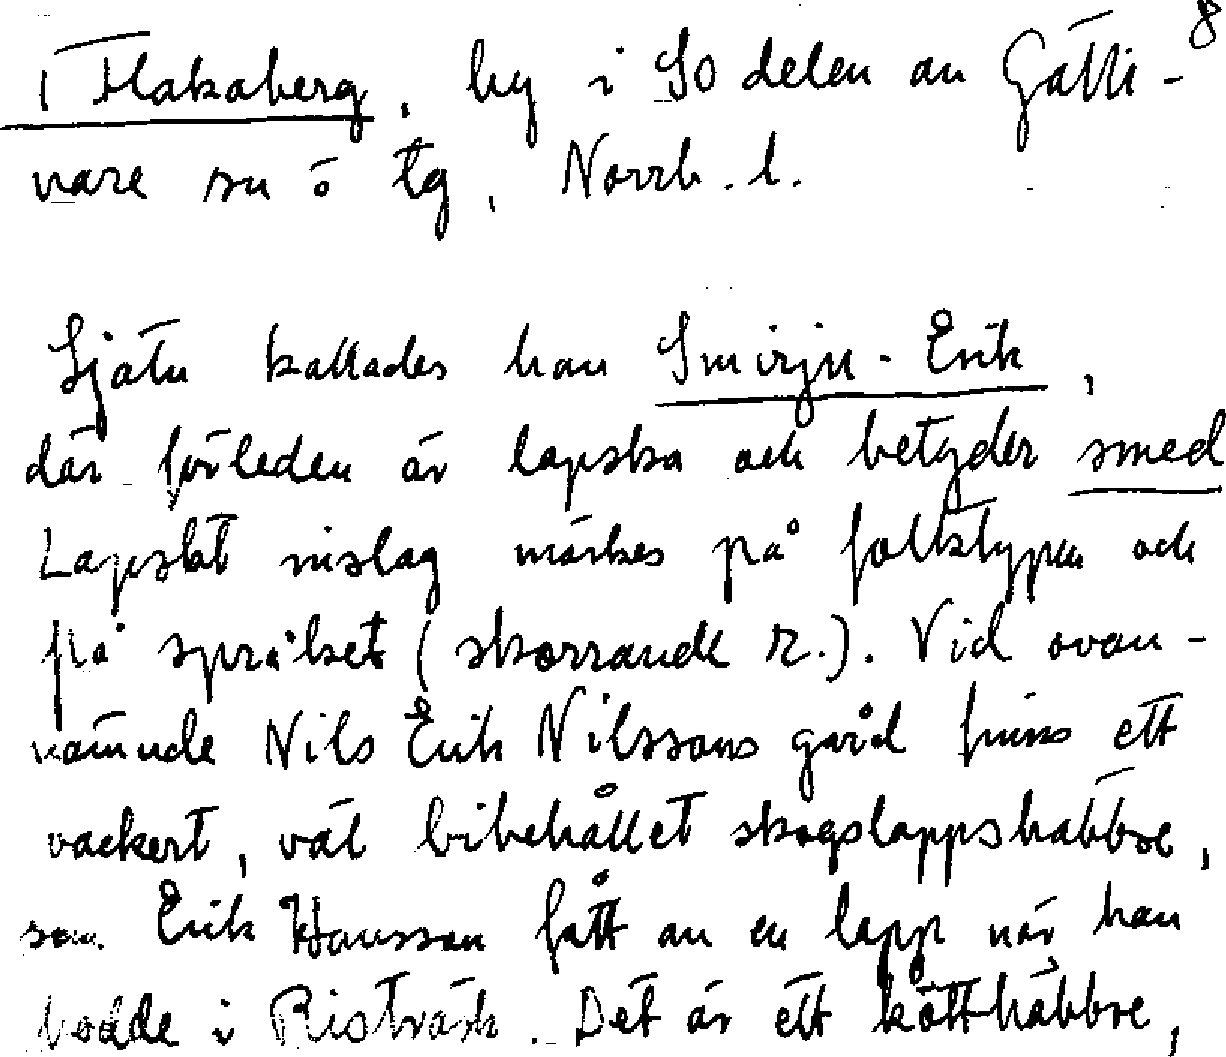 8
i Flakaberg, by i SO delen av Gälli-
vare sn o tg, Norrb. l.
Själv kallades han Smirju-Erik,
där förleden är lapska och betyder smed
Lapskt inslag märkes på folktypen och
på språket (skorrande r.). Vid ovan-
nämnde Nils Erik Nilssons gård finns ett
vackert, väl bibehållet skogslappshäbbre,
som Erik Hansson fått av en lapp när han
bodde i Risträsk. Det är ett kötthäbbre,